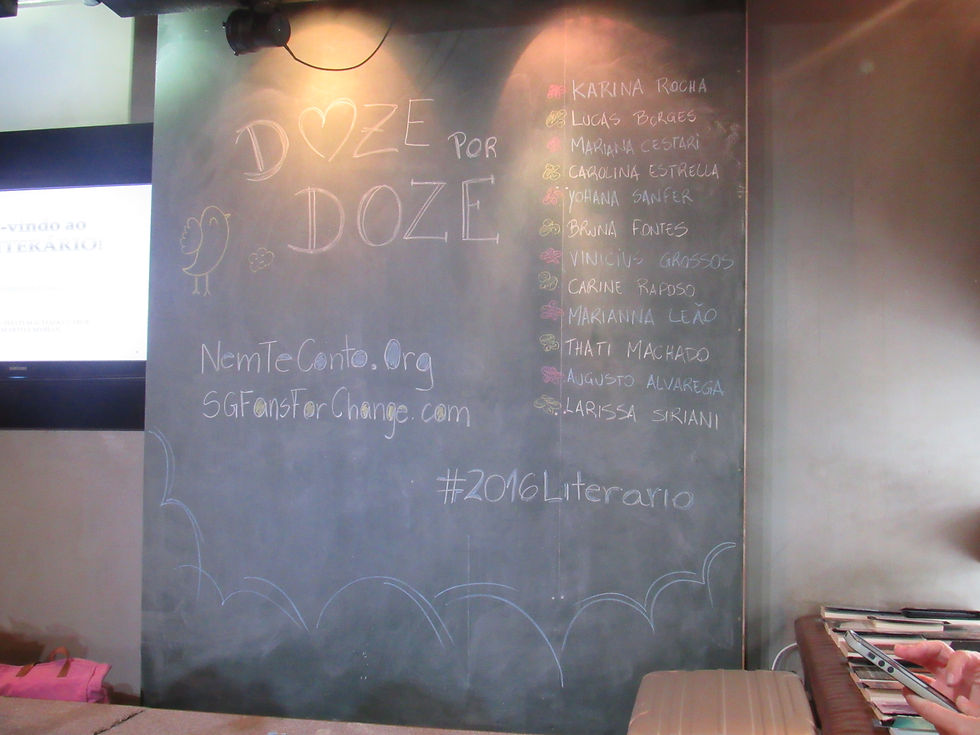 D♡ZE POR
DOZE
NemTeConto.Org
SGFansForChange.com
KARINA ROCHA
LUCAS BORGES
MARIANA CESTARI
CAROLINA ESTRELLA
YOHANA SANFER
BRUNA FONTES
VINICIUS GROSSOS
CARINE RAPOSO
MARIANNA LEÃO
THATI MACHADO
AUGUSTO ALVAREGA
LARISSA SIRIANI
#2016Literario
-vindo ao
ITERÁRIO!
SAMSUNG